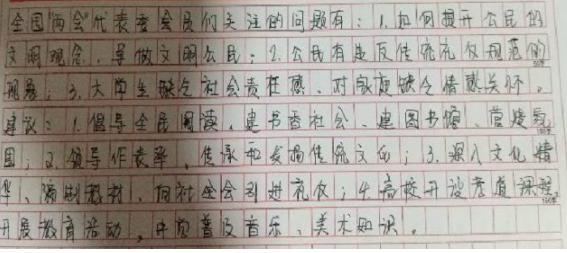 全国“两会”代表委员们关注的问题有：1.如何提升公民的
文明观念，争做文明公民；2.公民有违反传统礼仪规范的
现象；3.大学生缺乏社会责任感、对家庭缺乏情感关怀。
建议：1.倡导全民阅读，建书香社会、建图书馆、营造氛
围；2.领导作表率，传承和发扬传统文化；3.深入文化精
华、编制教材，向社会引进礼仪；4.高校开设孝道课程，
开展教育活动，中宣普及音乐、美术知识。